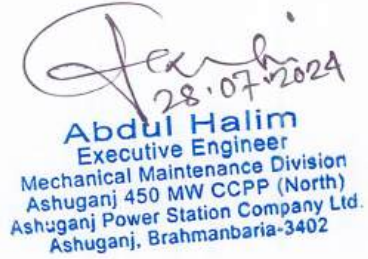 28.07.2024
Abdul Halim
Executive Engineer
Mechanical Maintenance Division
Ashuganj 450 MW CCPP (North)
Ashuganj Power Station Company Ltd.
Ashuganj, Brahmanbaria-3402